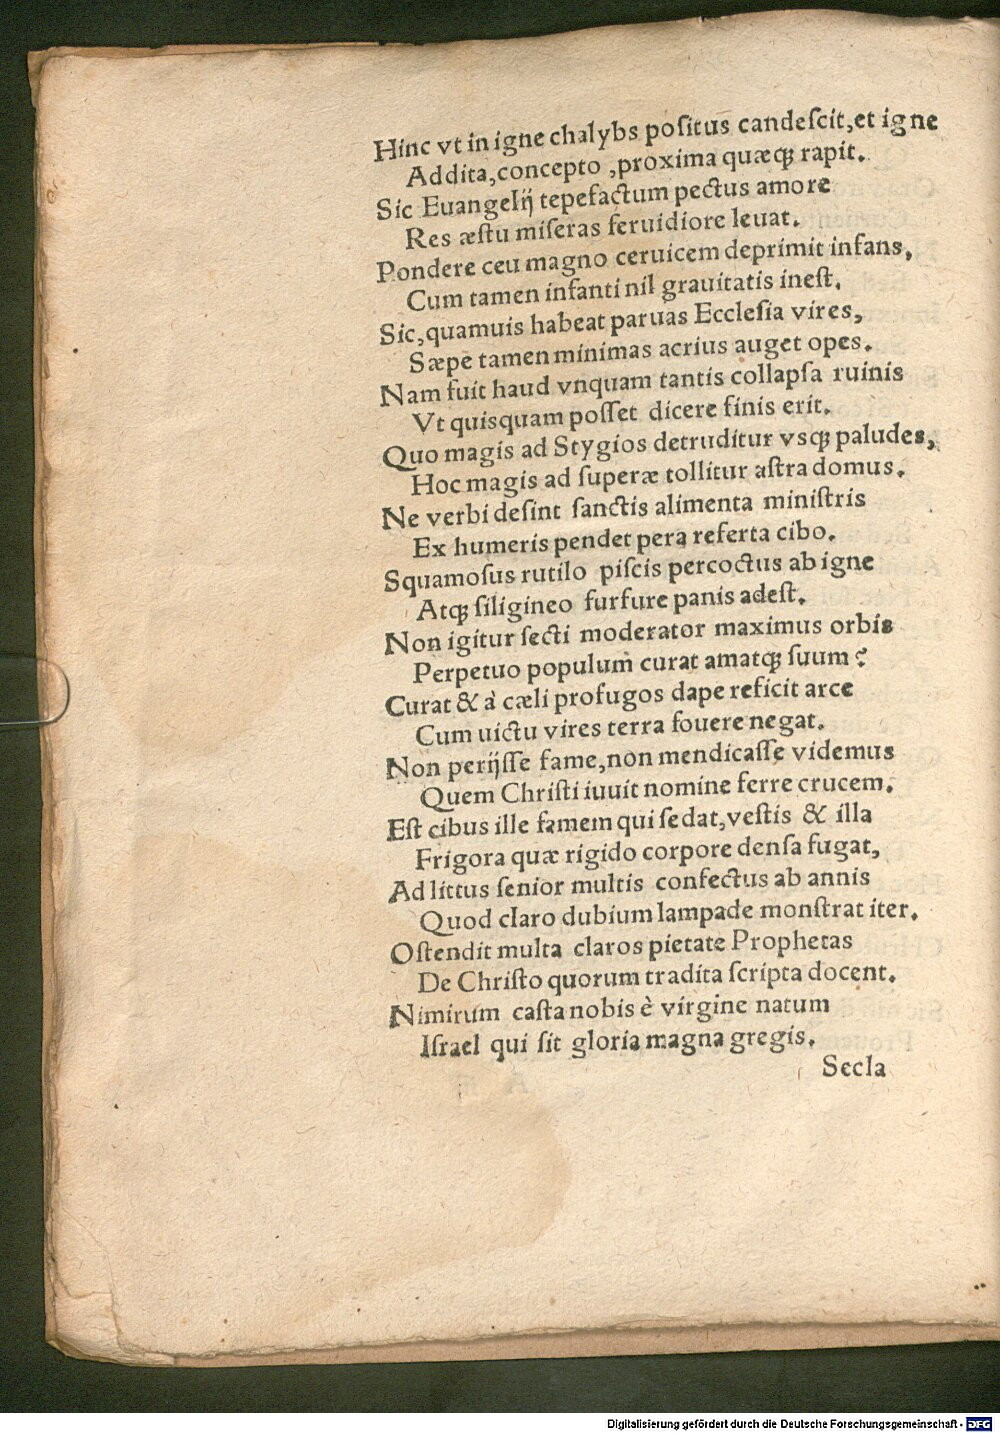 Hinc vt in igne chalybs poſitus candeſcit,et igne
Addita,concepto ,proxima quæqꝫ rapit.
Sic Euangelij tepefactum pectus amore
Res æſtu miſeras feruidiore leuat.
Pondere ceu magno ceruicem deprimit infans,
Cum tamen infanti nil grauitatis ineſt.
Sic,quamuis habeat paruas Eccleſia vires,
Sæpe tamen minimas acrius auget opes.
Nam fuit haud vnquam tantis collapſa ruinis
Vt quisquam poſſet dicere finis erit.
Quo magis ad Stygios detruditur vsqꝫ paludes,
Hoc magis ad ſuperæ tollitur aſtra domus.
Ne verbi deſint ſanctis alimenta miniſtris
Ex humeris pendet pera referta cibo.
Squamoſus rutilo piſcis percoctus ab igne
Atqꝫ ſiligineo furfure panis adeſt.
Non igitur ſecti moderator maximus orbis
Perpetuo populum curat amatqꝫ ſuum?
Curat & à cæli profugos dape reficit arce
Cum uictu vires terra fouere negat.
Non perijſſe fame,non mendicaſſe videmus
Quem Chriſti iuuit nomine ferre crucem.
Eſt cibus ille famem qui ſedat,veſtis & illa
Frigora quæ rigido corpore denſa fugat,
Ad littus ſenior multis confectus ab annis
Quod claro dubium lampade monſtrat iter.
Oſtendit multa claros pietate Prophetas
De Chriſto quorum tradita ſcripta docent.
Nimirum caſta nobis è virgine natum
Iſrael qui ſit gloria magna gregis.
Secla
Digitalisierung gefördert durch die Deutsche Forschungsgemeinschaft - DFG